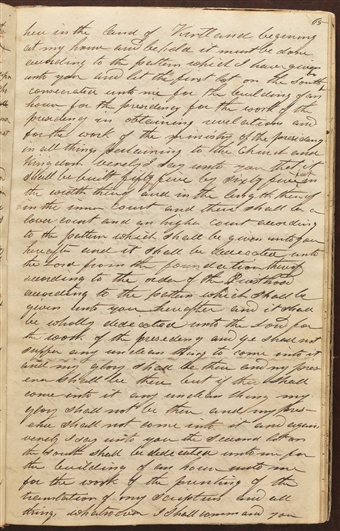 65
here in the land of Kirtland begining
at my house and behold it must be done
according to the pattern which I have given
unto you and let the first lot on the South be
consecrated unto me for the building of an
house for the presidency for the work of the
presidency in obtaining revelations and
for the work of the ministry of the presidency
in all things pertaining to the Church and
Kingdom verely I say unto you that it
shall be built fifty five by sixty five feet in
the width thereof and in the length thereof
in the inner court and there shall be a
lower court and an higher court according
to the pattern which shall be given unto you
hereafter and it shall be dedicated unto
the Lord from the foundation thereof
according to the order of the Priesthood
according to the pattern which shall be
given unto you hereafter and it shall
be wholly dedicated unto the Lord for
the work of the presedency and ye shall not
suffer any unclean thing to come into it
and my glory shall be there and my pres
ence shall be there but if there shall
come into it any unclean thing my
glory shall not be there and my pres-
ence shall not come into it and again
verely I say unto you the second lot on
the South shall be dedicated unto me for
the building of an house unto me
for the work of the printing of the
translation of my Scriptures and all
things whatsoever I shall command you